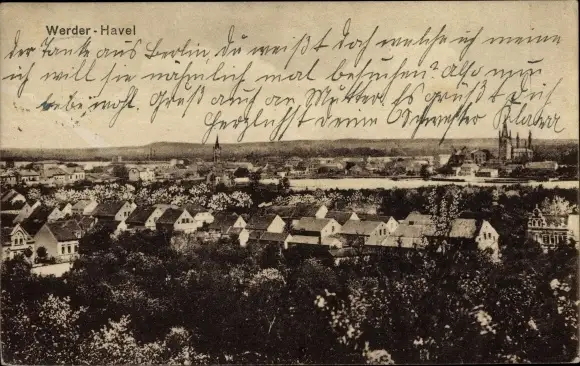 Werder - Havel
der Tante aus Berlin, Du weißt doch welche ich meine
ich will sie nämlich mal besuchen? Also nun
lebe wohl. Gruß auch an Mutter. Es grüßt dich
herzlichst deine Schwester Klara